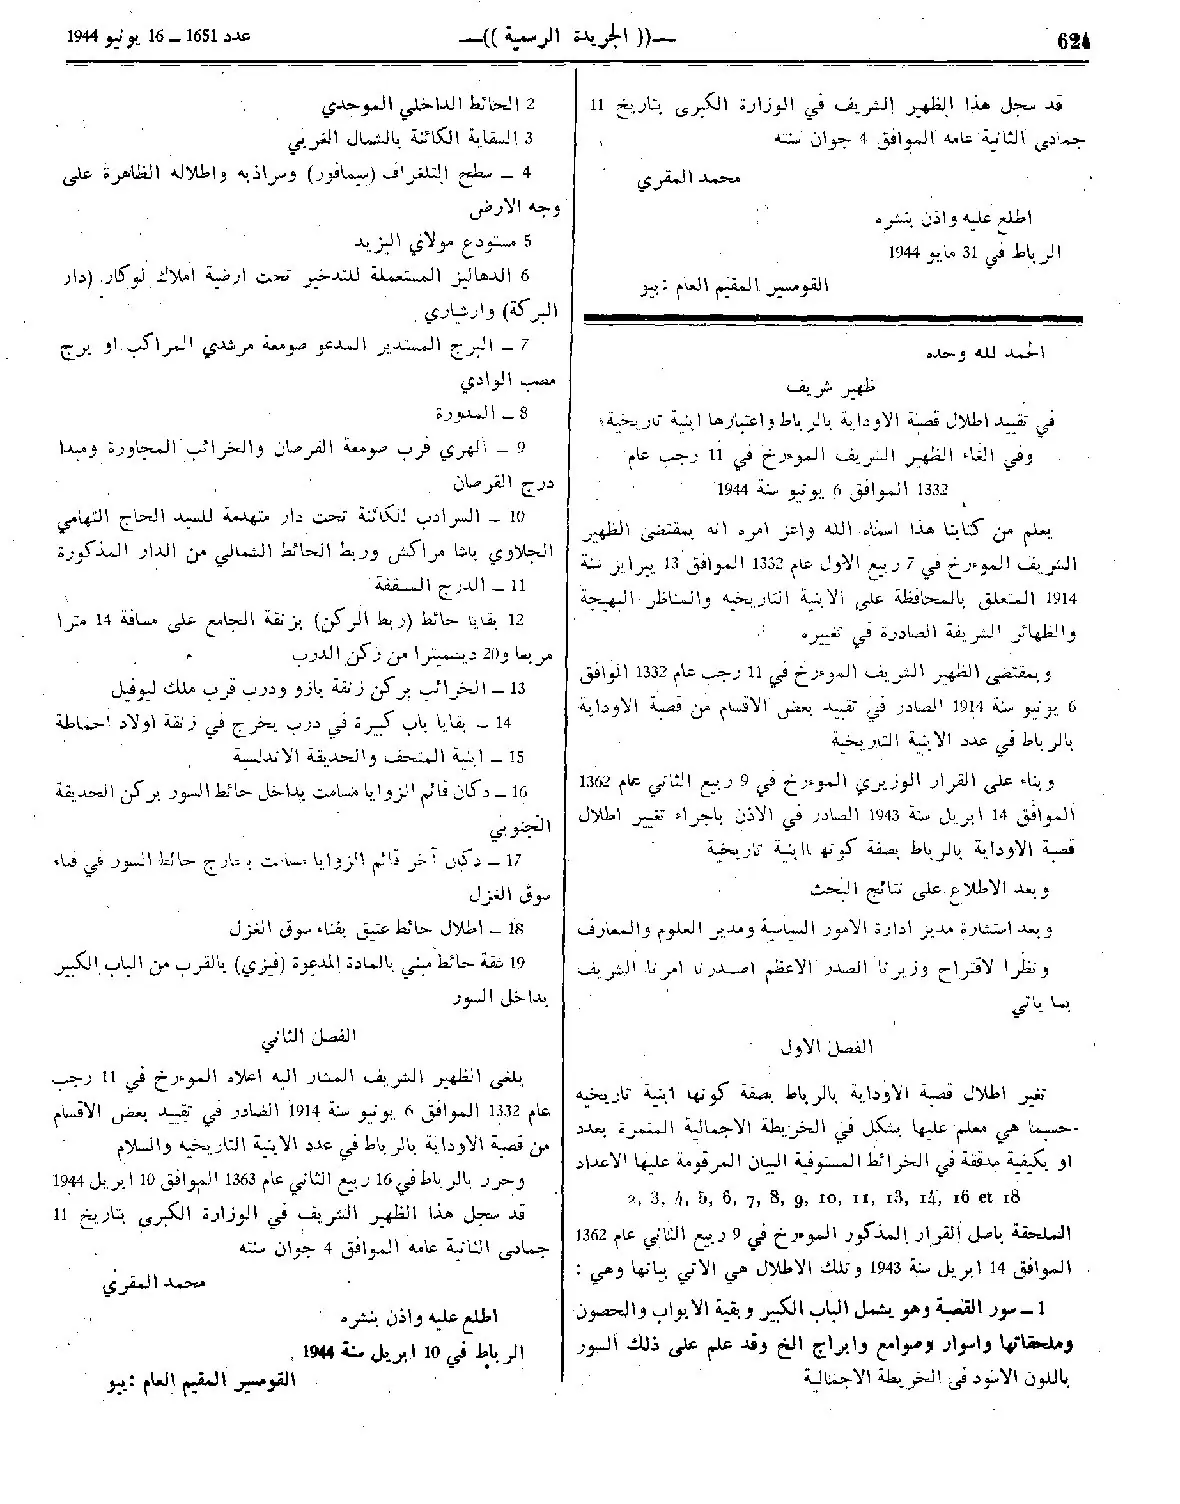 624
—(( الجريدة الرسمية ))—
عدد 1651 – 16 يونيو 1944
قد سجل هذا الظهير الشريف في الوزارة الكبرى بتاريخ 11
جمادى الثانية عامه الموافق 4 جوان سنته
محمد المقري
اطلع عليه واذن بنشره
الرباط في 31 مايو 1944
القومسير المقيم العام : بيو
الحمد لله وحده
ظهير شريف
في تقييد اطلال قصبة الاوداية بالرباط واعتبارها ابنية تاريخية
وفي الغاء الظهير الشريف الموءرخ في 11 رجب عام
1332 الموافق 6 يونيو سنة 1944
يعلم من كتابنا هذا اسماه الله واعز امره انه بمقتضى الظهير
الشريف الموءرخ في 7 ربيع الاول عام 1332 الموافق 13 يبراير سنة
1914 المتعلق بالمحافظة على الابنية التاريخيه والمناظر البهيجة
والظهائر الشريفة الصادرة في تغييره
وبمقتضى الظهير الشريف الموءرخ في 11 رجب عام 1332 الموافق
6 يونيو سنة 1914 الصادر في تقييد بعض الاقسام من قصبة الاوداية
بالرباط في عدد الابنية التاريخية
وبناء على القرار الوزيري الموءرخ في 9 ربيع الثاني عام 1362
الموافق 14 ابريل سنة 1943 الصادر في الاذن باجراء تقيير اطلال
قصبة الاوداية بالرباط بصفة كونها ابنية تاريخية
وبعد الاطلاع على نتائج البحث
وبعد استشارة مدير ادارة الامور السياسية ومدير العلوم والمعارف
ونظرا لاقتراح وزيرنا الصدر الاعظم اصدرنا امرنا الشريف
بما ياتي
الفصل الاول
تقير اطلال قصبة الاوداية بالرباط بصفة كونها ابنية تاريخيه
حسبما هي معلم عليها بشكل في الخريطة الاجمالية المنمرة بعدد
او بكيفية مدققة في الخرائط المستوفية البيان المرقومة عليها الاعداد
2, 3, 4, 5, 6, 7, 8, 9, 10, 11, 13, 14, 16 et 18
الملحقة باصل القرار المذكور الموءرخ في 9 ربيع الثاني عام 1362
الموافق 14 ابريل سنة 1943 وتلك الاطلال هي الاتي بيانها وهي :
1 – سور القصبة وهو يشمل الباب الكبير وبقية الابواب والحصون
وملحقاتها واسوار وصوامع وابراج الخ وقد علم على ذلك السور
باللون الاسود في الخريطة الاجمالية
2 الحائط الداخلي الموحدي
3 السقاية الكائنة بالشمال الغربي
4 – سطح التلغراف (سيمافور) وسراذبه واطلاله الظاهرة على
وجه الارض
5 مستودع مولاي اليزيد
6 الدهاليز المستعملة للتدخير تحت ارضية املاك لوكار (دار
البركة) وارشاري
7 – البرج المستدير المدعو صومعة مرشدي المراكب او برج
مصب الوادي
8 – المدورة
9 – الهري قرب صومعة القرصان والخرائب المجاورة ومبدا
درج القرصان
10 – السرادب الكائنة تحت دار متهدمة للسيد الحاج التهامي
الجلاوي باشا مراكش وربط الحائط الشمالي من الدار المذكورة
11 – الدرج المسقفة
12 بقايا حائط (ربط الركن) بزنقة الجامع على مسافة 14 مترا
مربعا و20 ديسميترا من ركن الدرب
13 – الخرائب بركن زنقة بازو ودرب قرب ملك ليوفيل
14 – بقايا باب كبيرة في درب يخرج في زنقة اولاد احماطة
15 – ابنية المتحف والحديقة الاندلسية
16 – دكان قائم الزوايا مسامت بداخل حائط السور بركن الحديقة
الجنوبي
17 – دكان آخر قائم الزوايا مسامت بخارج حائط السور في فناء
سوق الغزل
18 – اطلال حائط عتيق بفناء سوق الغزل
19 شقة حائط مبني بالمادة المدعوة (فيزي) بالقرب من الباب الكبير
بداخل السور
الفصل الثاني
يلغى الظهير الشريف المشار اليه اعلاه الموءرخ في 11 رجب
عام 1332 الموافق 6 يونيو سنة 1914 الصادر في تقييد بعض الاقسام
من قصبة الاوداية بالرباط في عدد الابنية التاريخيه والسلام
وحرر بالرباط في 16 ربيع الثاني عام 1363 الموافق 10 ابريل 1944
قد سجل هذا الظهير الشريف في الوزارة الكبرى بتاريخ 11
جمادى الثانية عامه الموافق 4 جوان سنته
محمد المقري
اطلع عليه واذن بنشره
الرباط في 10 ابريل سنة 1944
القومسير المقيم العام : بيو